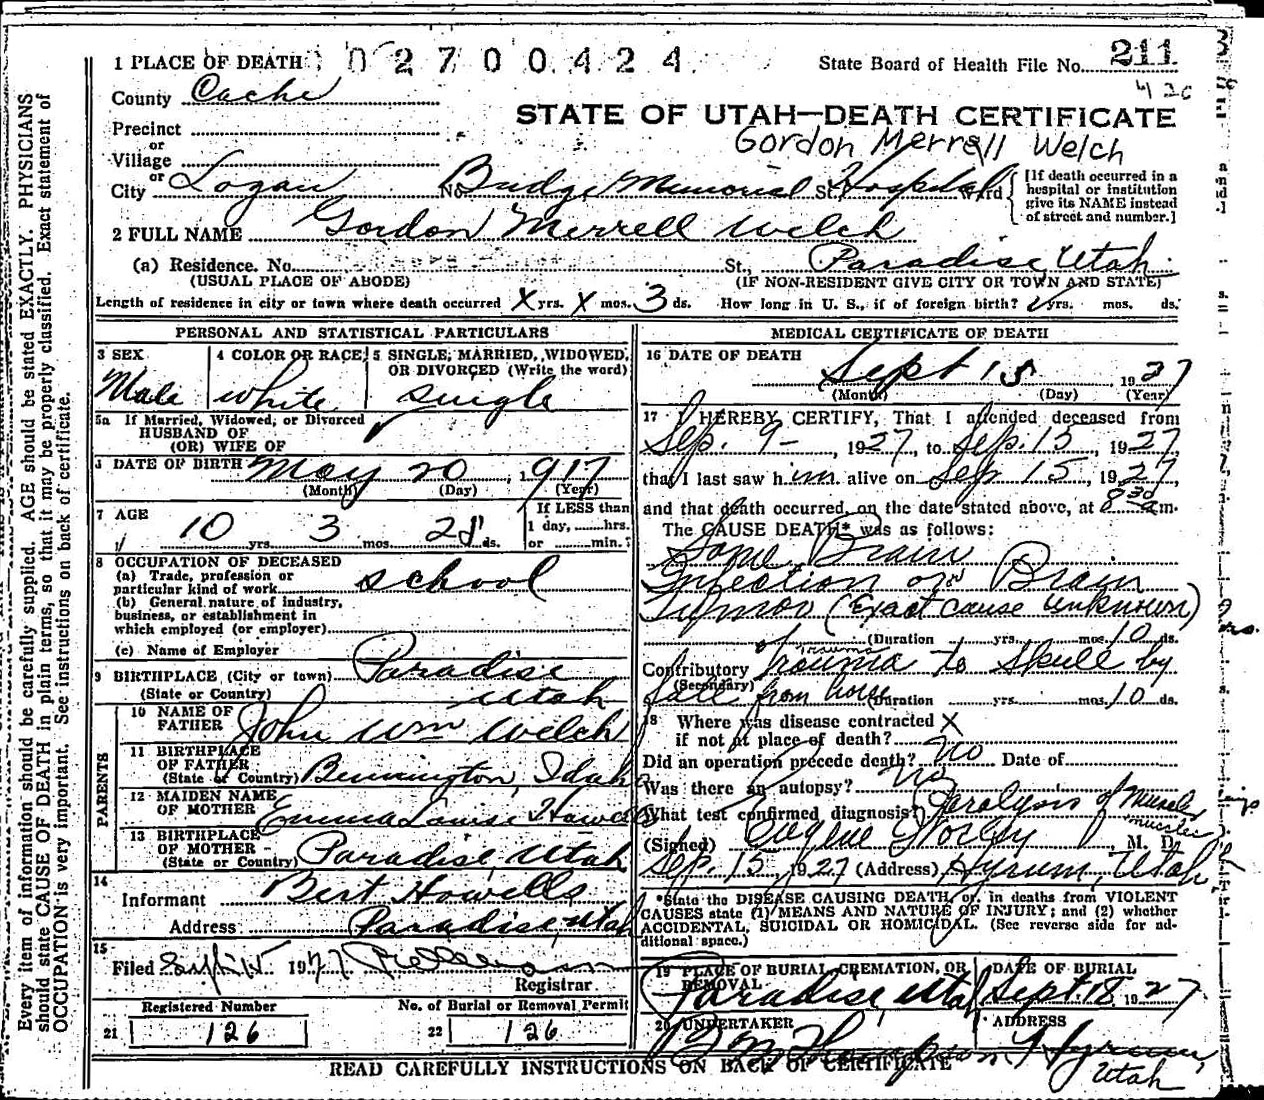 1 PLACE OF DEATH 02700424
State Board of Health File No. 211
County Cache
420
STATE OF UTAH—DEATH CERTIFICATE
Precinct
Gordon Merrell Welch
or
Village
or
City Logan No. Budge Memorial St. Hospital Ward
[If death occurred in a hospital or institution give its NAME instead of street and number.]
2 FULL NAME Gordon Merrell Welch
(a) Residence. No. St. Paradise, Utah
(USUAL PLACE OF ABODE) (IF NON-RESIDENT GIVE CITY OR TOWN AND STATE)
Length of residence in city or town where death occurred X yrs. X mos. 3 ds. How long in U. S., if of foreign birth? yrs. mos. ds.
PERSONAL AND STATISTICAL PARTICULARS
3 SEX Male
4 COLOR OR RACE white
5 SINGLE, MARRIED, WIDOWED, OR DIVORCED (Write the word) single
5a If Married, Widowed, or Divorced
HUSBAND OF
(OR) WIFE OF
DATE OF BIRTH May 20, 1917
(Month) (Day) (Year)
7 AGE 10 yrs. 3 mos. ds.
If LESS than
1 day, hrs.
or min.?
8 OCCUPATION OF DECEASED
(a) Trade, profession or
particular kind of work school
(b) General nature of industry,
business, or establishment in
which employed (or employer)
(c) Name of Employer
9 BIRTHPLACE (City or town) Paradise
(State or Country) Utah
PARENTS
10 NAME OF
FATHER John Wm Welch
11 BIRTHPLACE
OF FATHER
(State or Country) Bennington, Idaho
12 MAIDEN NAME
OF MOTHER Emma Louise
13 BIRTHPLACE
OF MOTHER
(State or Country) Paradise, Utah
14
Informant Bert Howells
Address Paradise, Utah
15
Filed 1927
Registrar
Registered Number
21 126
No. of Burial or Removal Permit
22 126
MEDICAL CERTIFICATE OF DEATH
16 DATE OF DEATH
Sept 15, 1927
(Month) (Day) (Year)
17 I HEREBY CERTIFY, That I attended deceased from
Sep. 9 -, 1927, to Sep. 15, 1927,
that I last saw him alive on Sep 15, 1927,
and that death occurred, on the date stated above, at 8 30 a.m.
The CAUSE DEATH* was as follows:
Some Brain
Infection or Brain
Tumor (Exact cause unknown)
(Duration yrs. mos. 10 ds.
trauma
Contributory Trauma to Skull by
(Secondary) fall from horse (Duration yrs. mos. 10 ds.
18 Where was disease contracted X
if not at place of death?
Did an operation precede death? no Date of
Was there an autopsy? no
What test confirmed diagnosis? Paralysis of Muscles
muscles
(Signed) Eugene Worley, M. D.
Sep. 15, 1927 (Address) Hyrum, Utah
*State the DISEASE CAUSING DEATH, or, in deaths from VIOLENT
CAUSES state (1) MEANS AND NATURE OF INJURY; and (2) whether
ACCIDENTAL, SUICIDAL OR HOMICIDAL. (See reverse side for ad-
ditional space.)
19 PLACE OF BURIAL, CREMATION, OR
REMOVAL
Paradise, Utah
DATE OF BURIAL
Sept. 18, 1927
20 UNDERTAKER
Thompson
ADDRESS
Hyrum,
Utah
READ CAREFULLY INSTRUCTIONS ON BACK OF CERTIFICATE
Every item of information should be carefully supplied. AGE should be stated EXACTLY. PHYSICIANS
should state CAUSE OF DEATH in plain terms, so that it may be properly classified. Exact statement of
OCCUPATION is very important. See instructions on back of certificate.